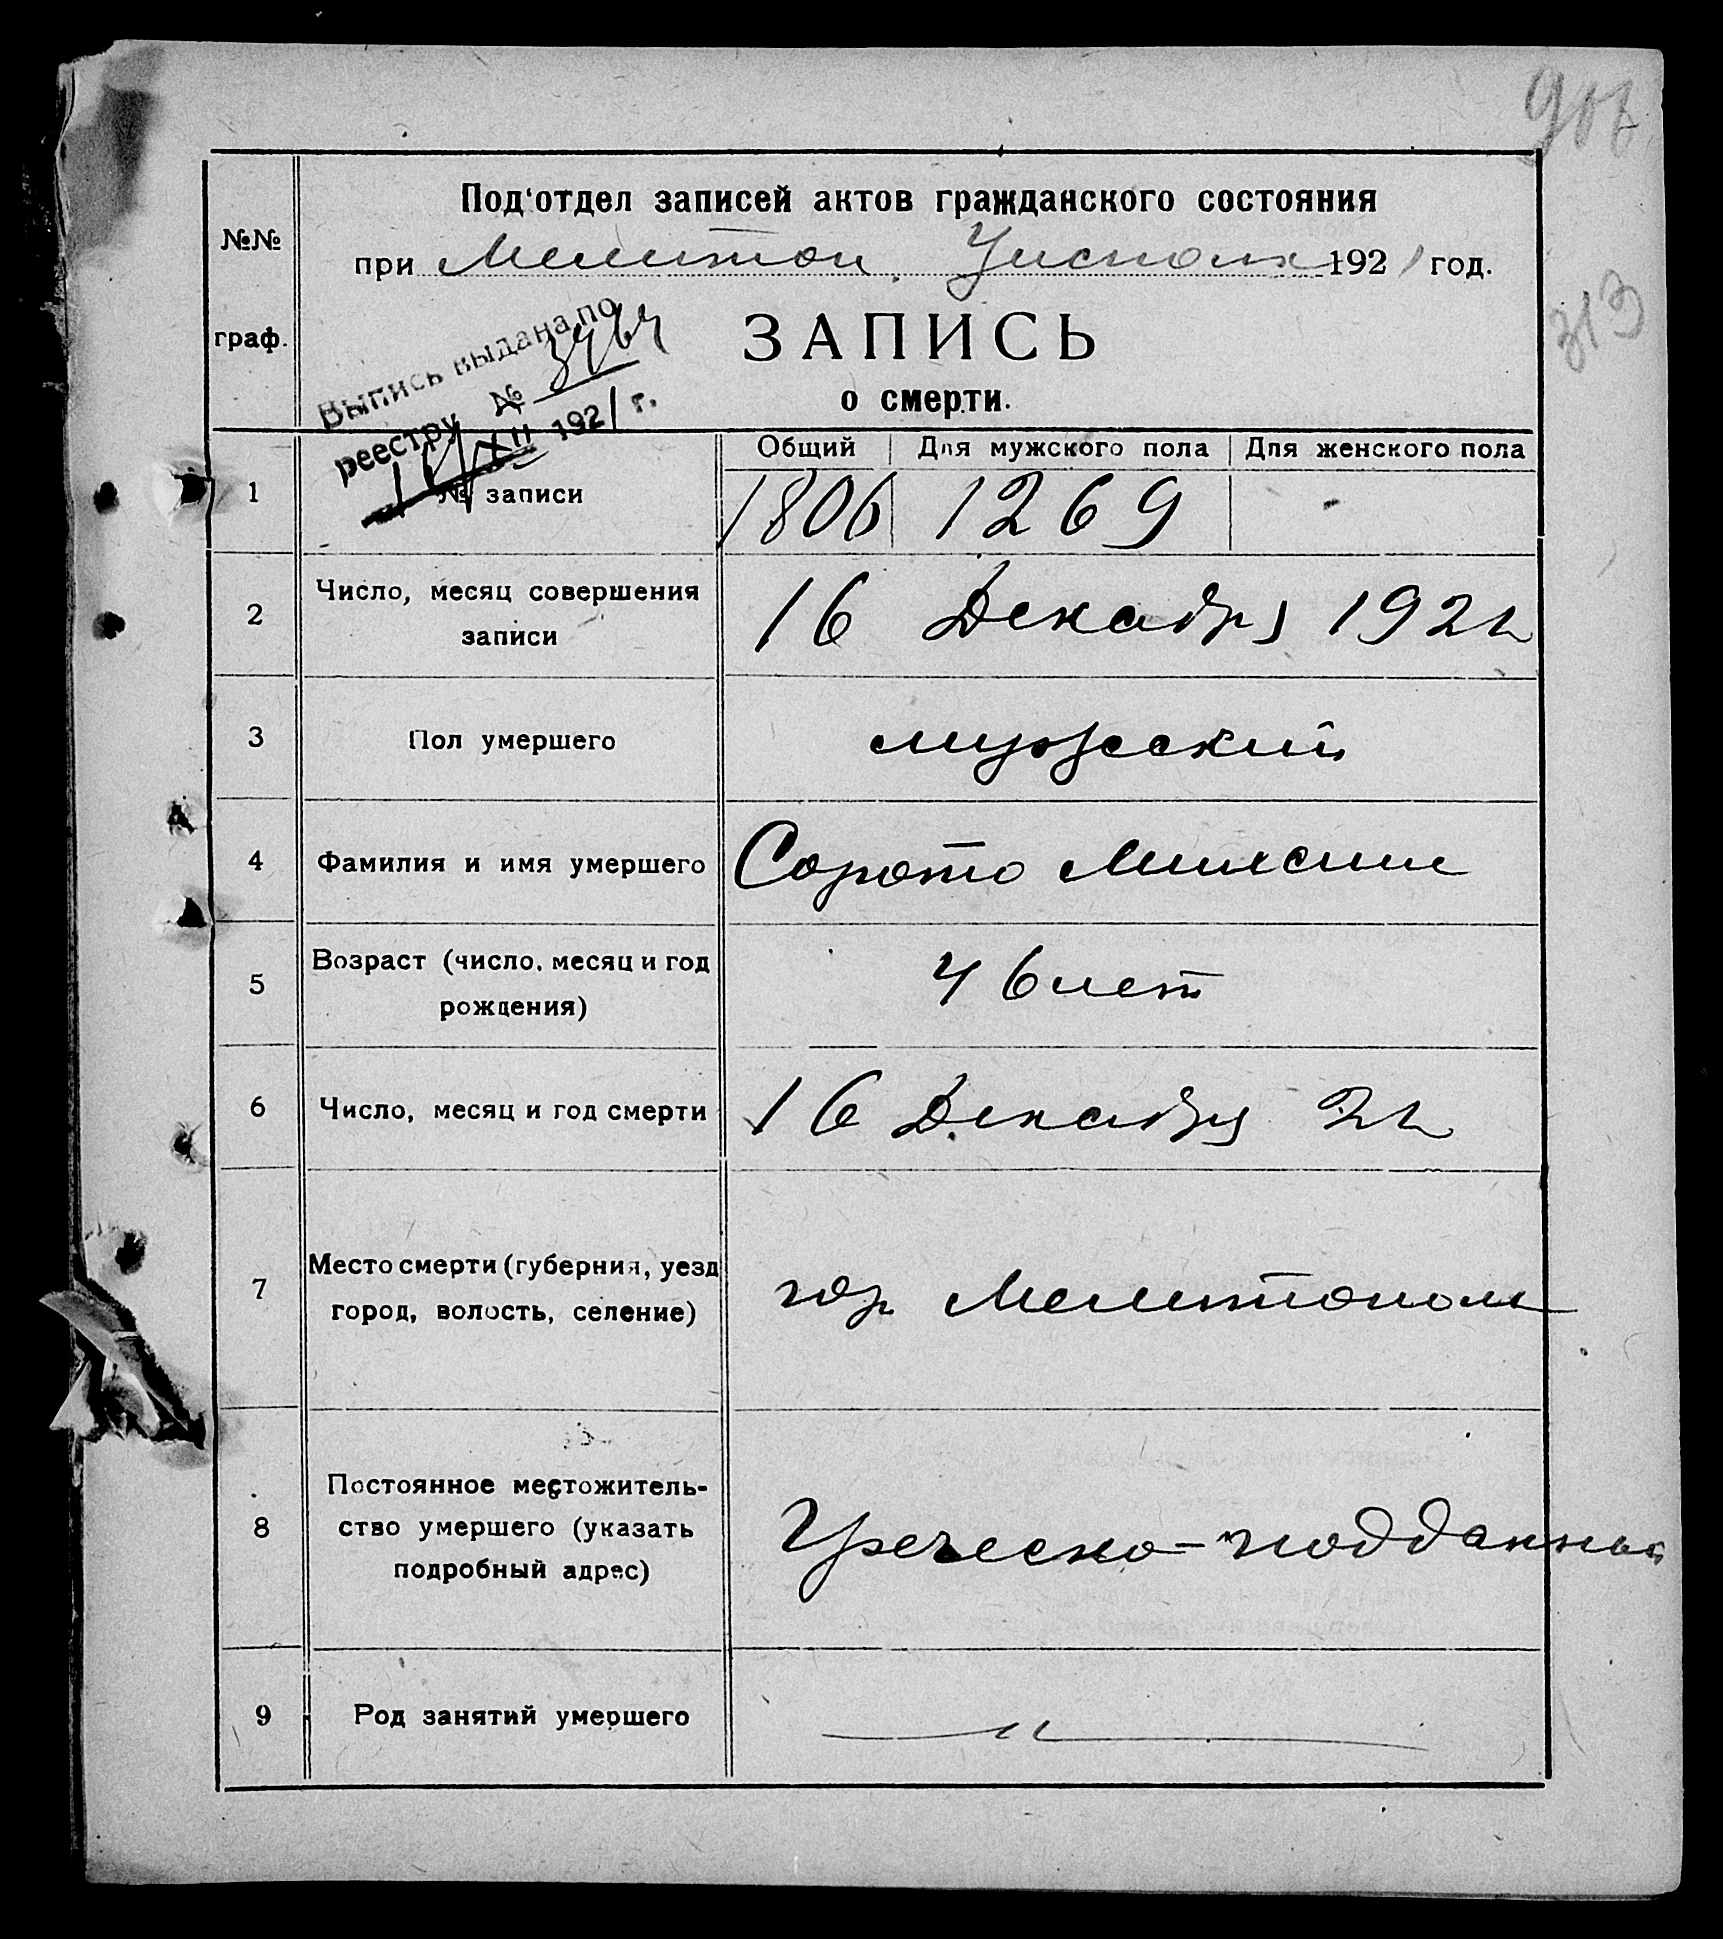 907
Под'отдел записей актов гражданского состояния
№№
при Мелитоп. Уисполк 1921 год.
313
граф.
ЗАПИСЬ
о смерти.
Выпись выдана по
реестру № 3464
16/XII 1921 г.
Общий Для мужского пола Для женского пола
1 № записи 1806 1269 -
2 Число, месяц совершения
записи
16 Декабря 1921
3 Пол умершего мужеский
4 Фамилия и имя умершего Сорото
5 Возраст (число, месяц и год
рождения)
46 лет
6 Число, месяц и год смерти 16 Декабря 21
7 Место смерти (губерния, уезд
город, волость, селение)
гор Мелитополь
8 Постоянное местожитель-
ство умершего (указать
подробный адрес)
Греческо-подданный
9 Род занятий умершего